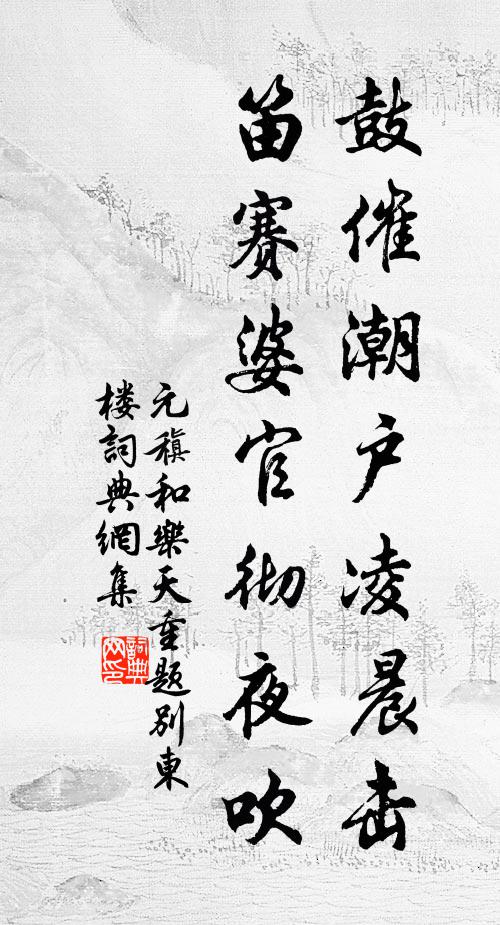 鼓催潮户凌晨击
笛赛婆官彻夜吹
元稹和樂天重題别東
楼詞典網集
詞典網印